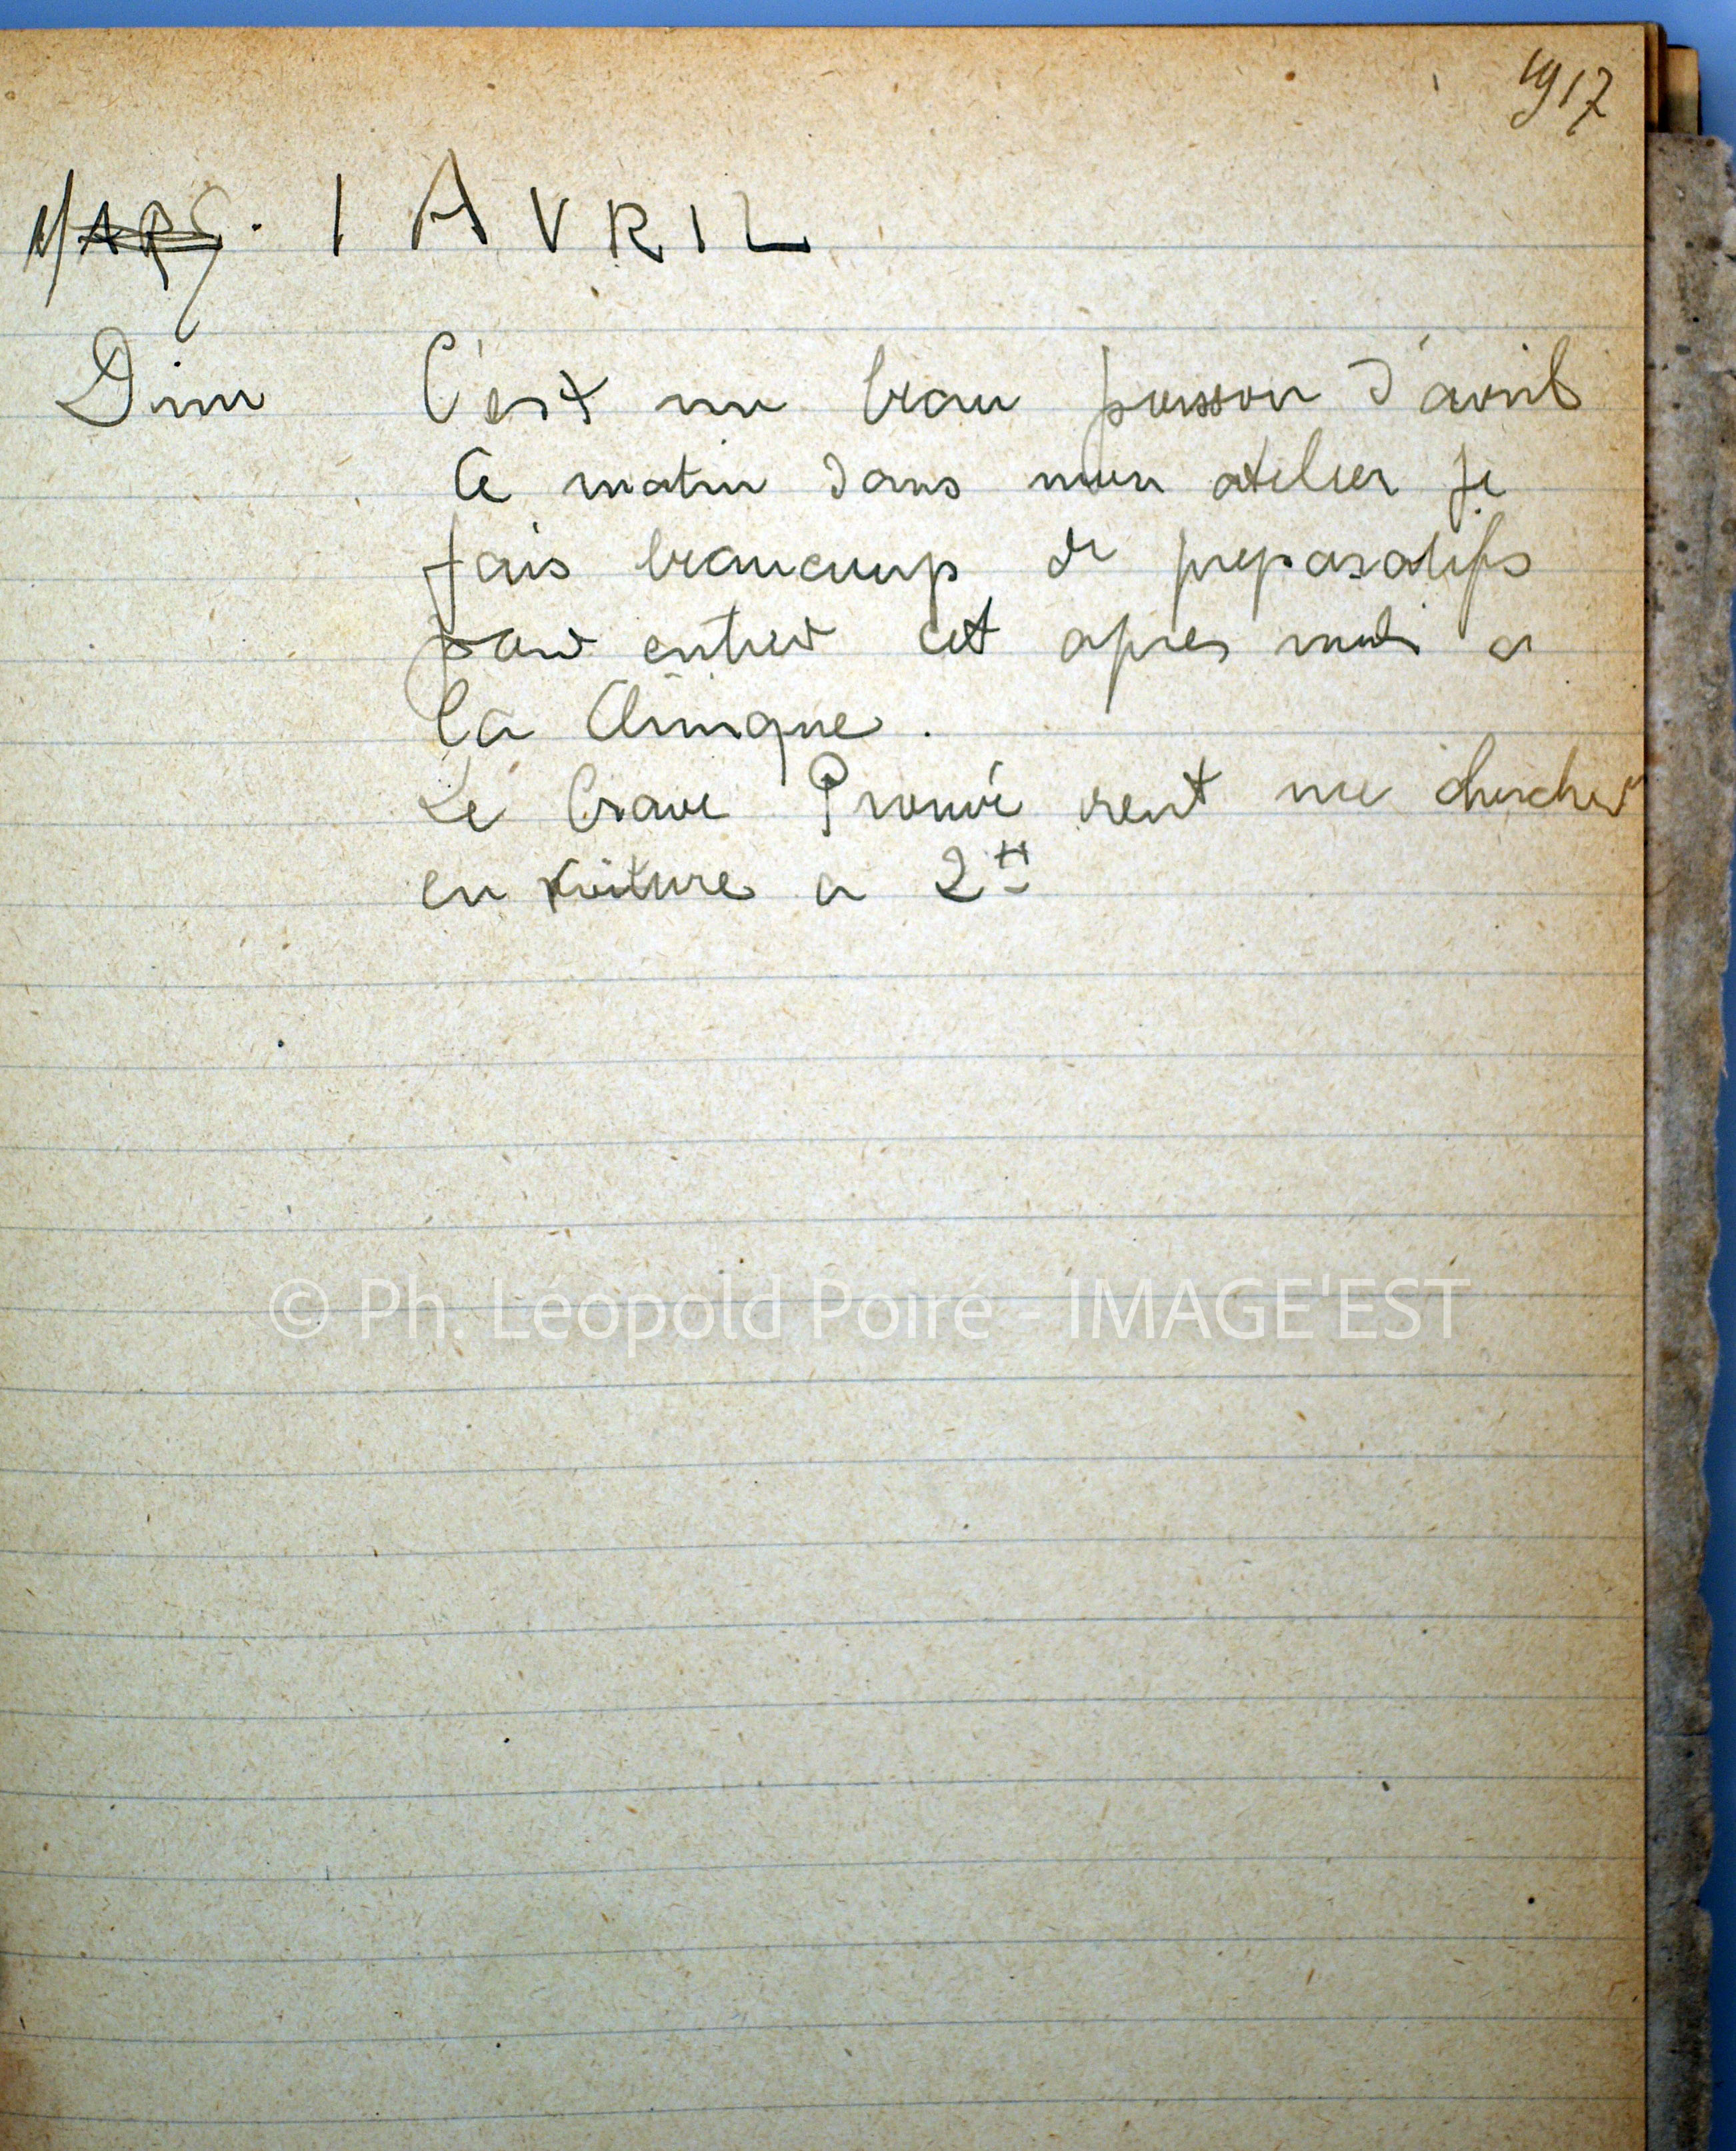 1917
MARS. 1 AVRIL
Dim C'est un beau poisson d'avril
Ce matin dans mon atelier je
fais beaucoup de preparatifs
pour entrer cet apres midi a
la Clinique.
Le brave Prouvé vient me chercher
en voiture a 2H
© Ph. Léopold Poiré - IMAGE'EST